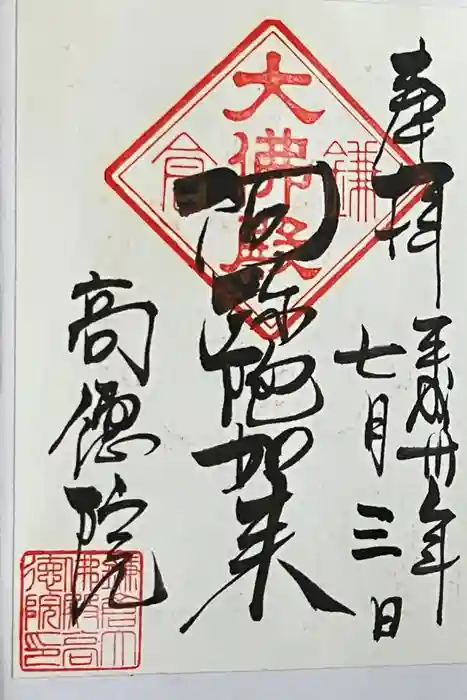 奉拝
平成卅年
七月三日
大佛殿
鎌倉
阿弥陀如来
高徳院
鎌倉大
佛殿高
徳院印